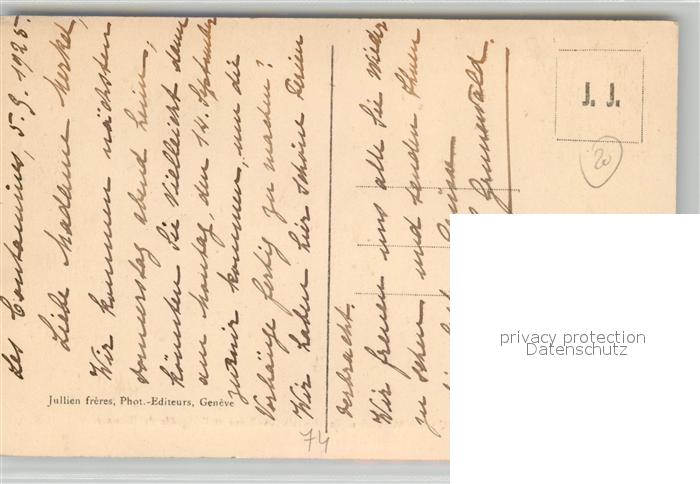 Les Contamines, 5.9.1925.
Liebe Madame Merkel,
Wir kommen nächsten
Donnerstag abend heim,
könnten Sie vielleicht dann
am Montag, den 14. September
zu mir kommen, um die
Vorhänge fertig zu machen?
Wir haben hier schöne Ferien
verbracht.
Wir freuen uns alle Sie wieder
zu sehen und senden Ihnen
Grüsse
Grunewald.
J. J.
20
Jullien frères, Phot.-Editeurs, Genève
74
privacy protection
Datenschutz